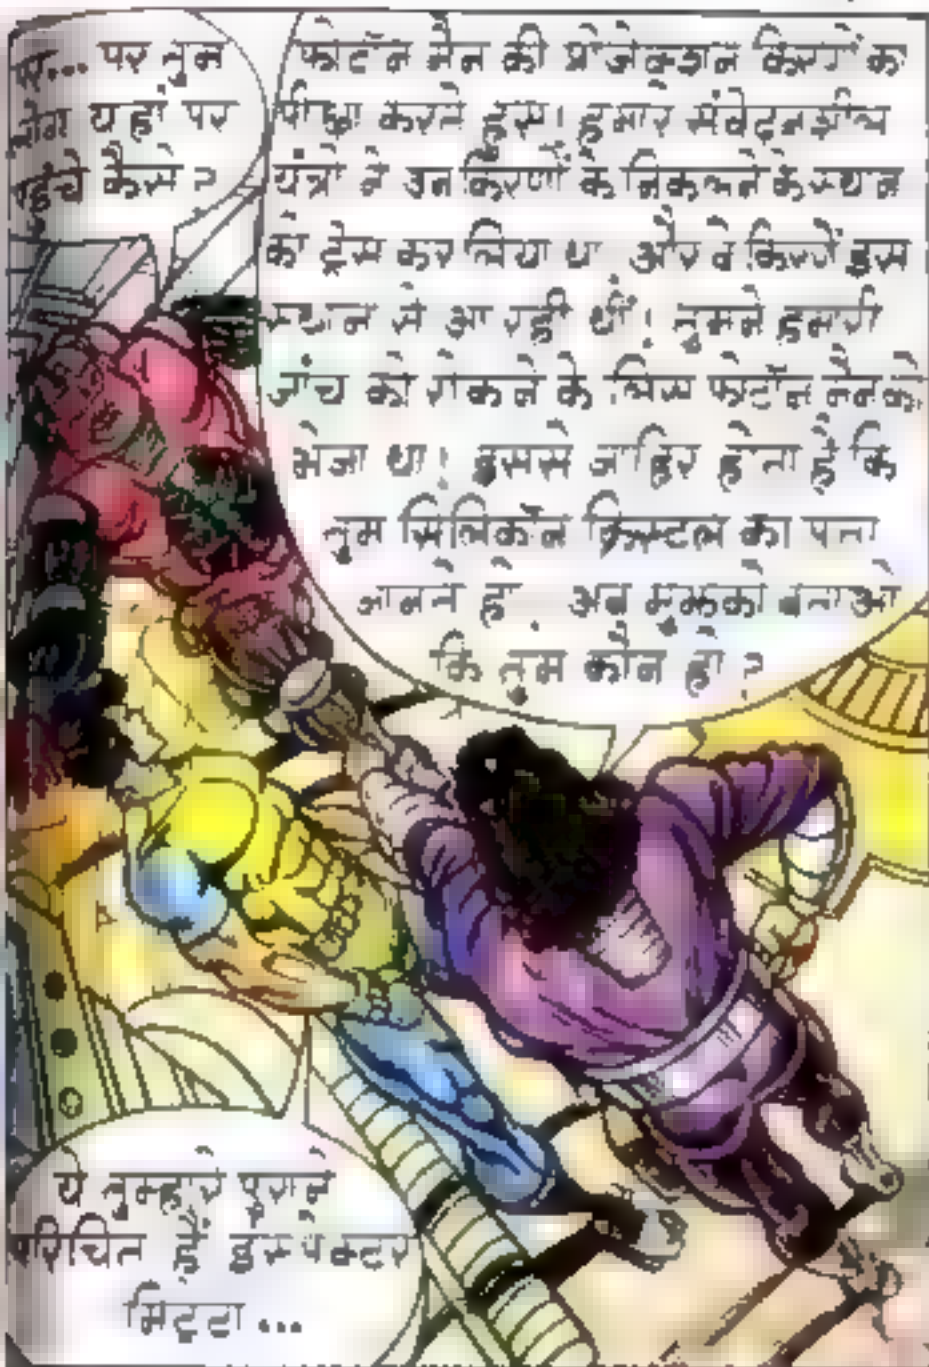 पर... पर तुम
लोग यहां पर
पहुंचे कैसे ?
फोटॉन मैन की प्रोजेक्शन किरणों का
पीछा करते हुए। हमारे संवेदनशील
यंत्रों ने उन किरणों के निकलने के स्थान
को ट्रेस कर लिया था और वे किरणें इस
स्थान से आ रही थीं! तुमने हमारी
जांच को रोकने के लिए फोटॉन मैन को
भेजा था! इससे जाहिर होता है कि
तुम सिलिकॉन क्रिस्टल का पता
जानते हो. अब मुझको बताओ
कि तुम कौन हो ?
ये तुम्हारे पुराने
परिचित हैं इंस्पेक्टर
मिट्टा...